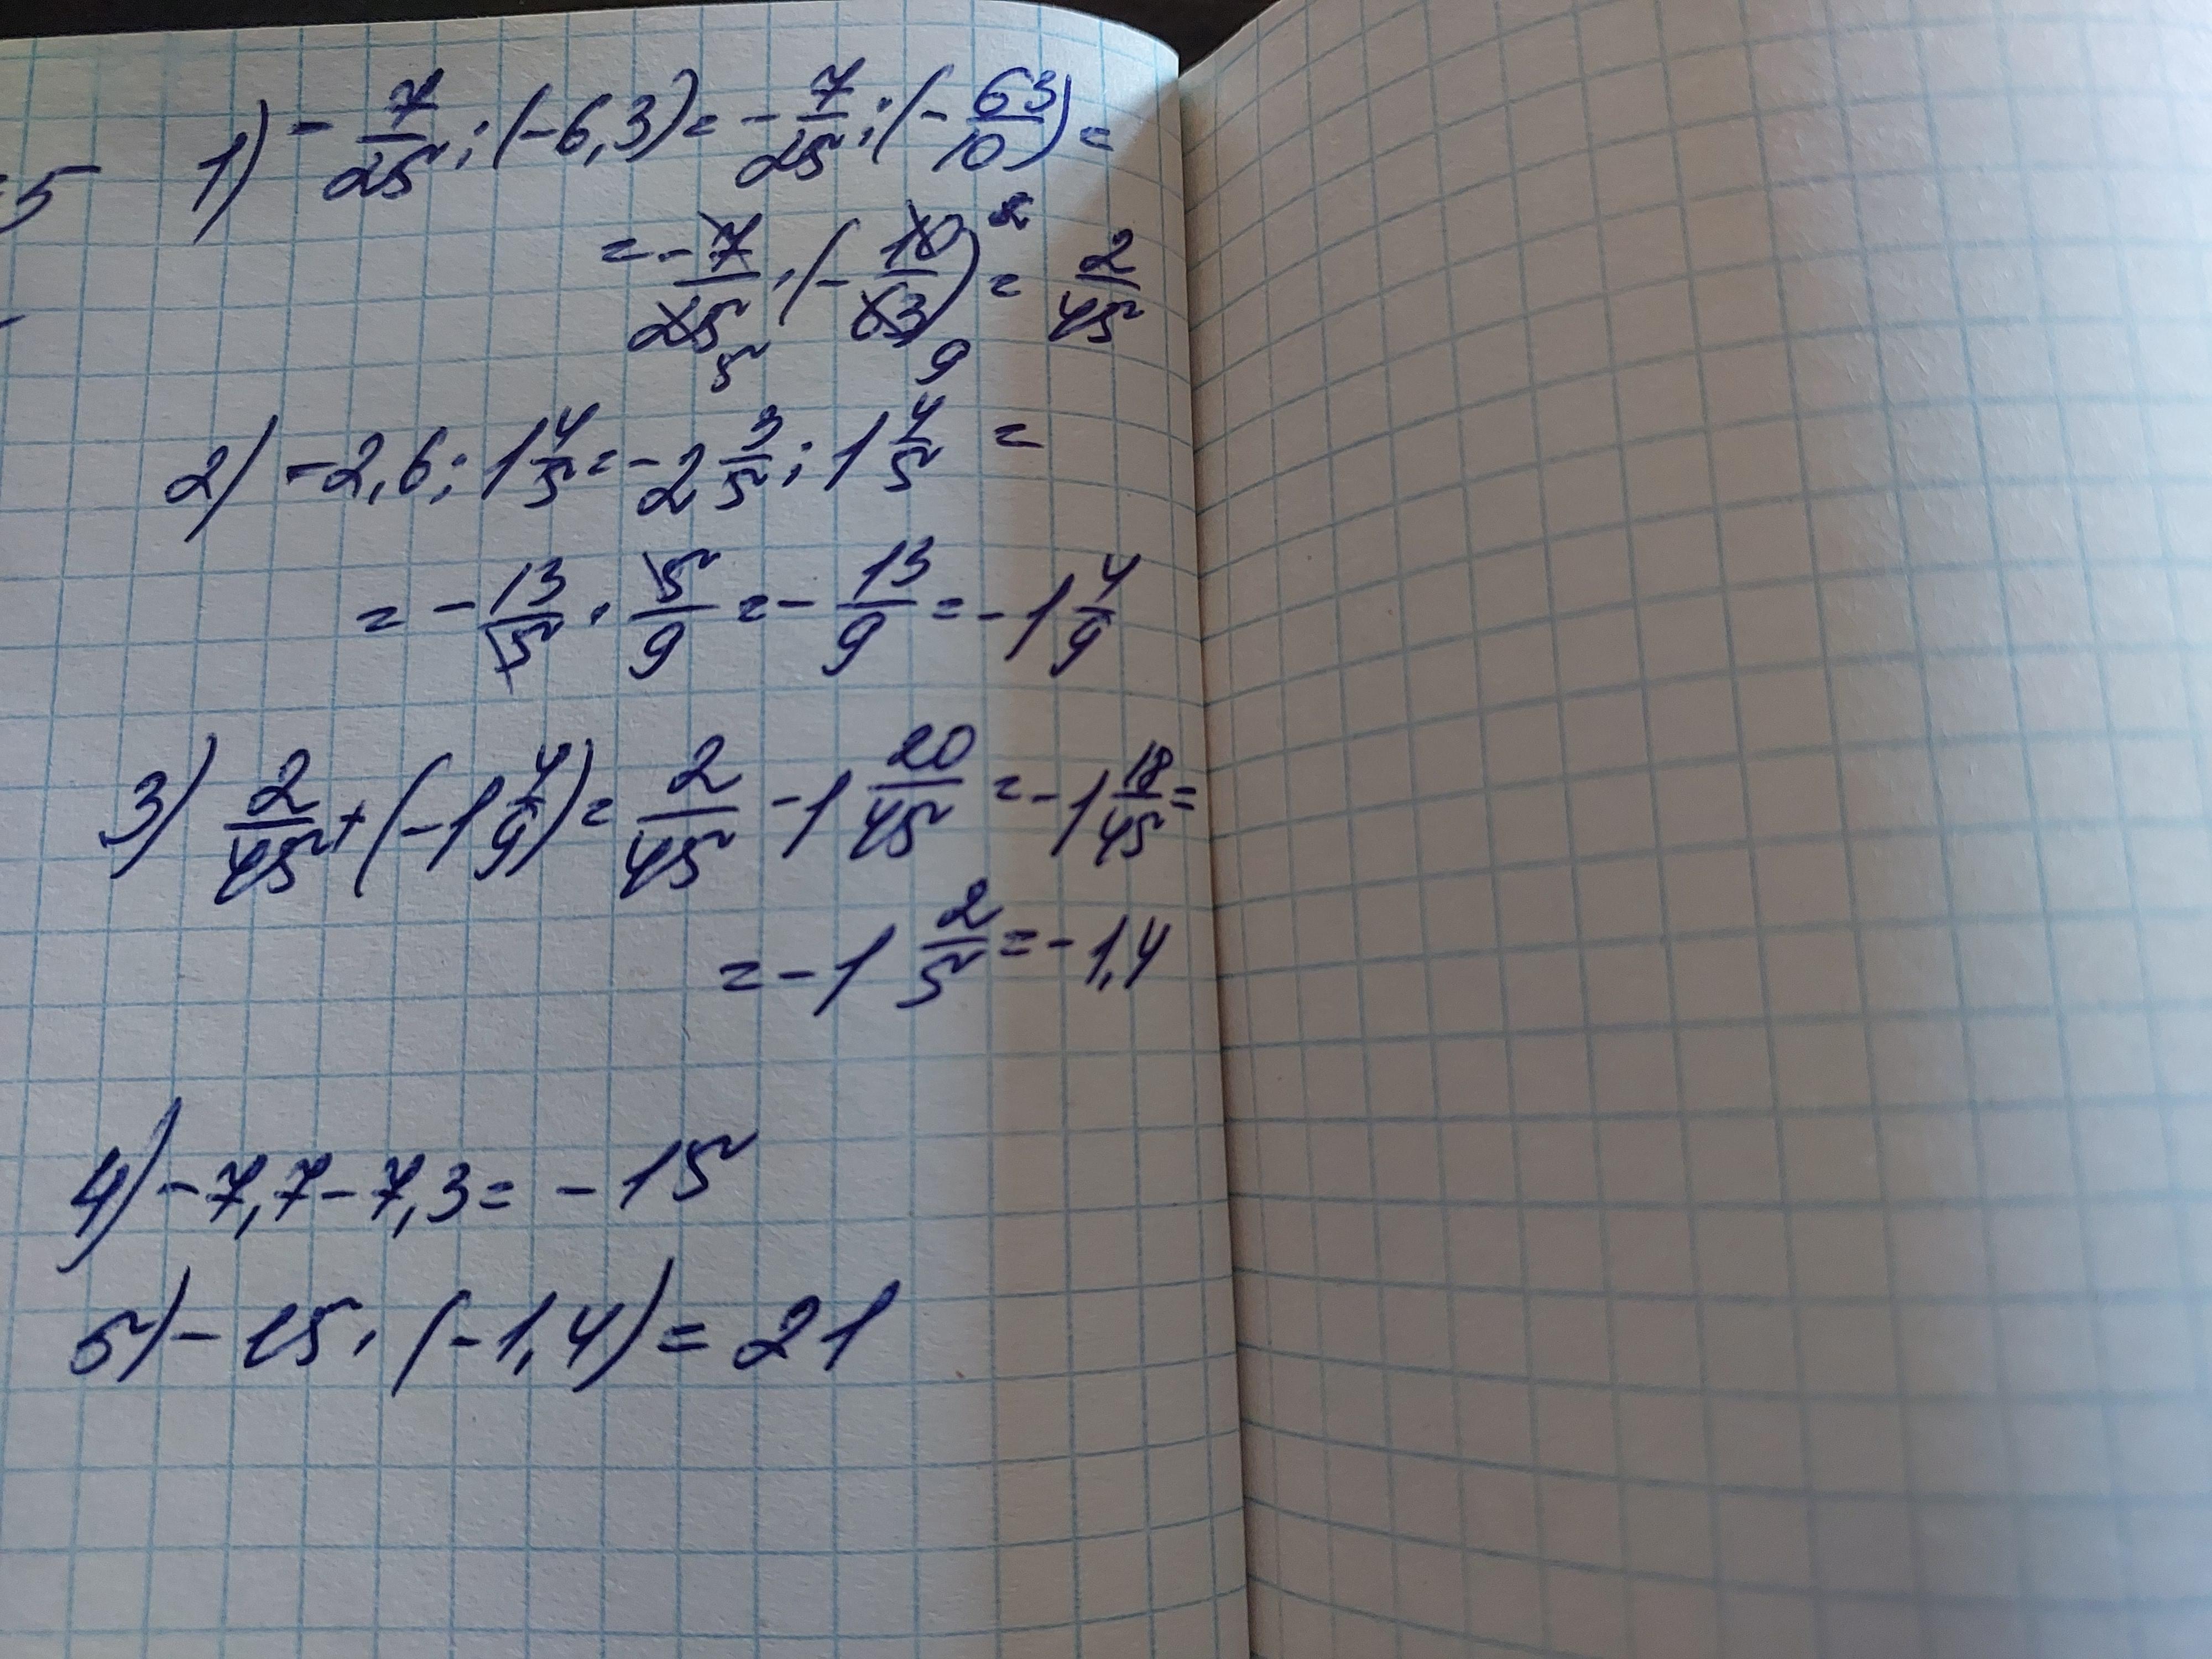 1) - 7/25 : (-6,3) = - 7/25 : (- 63/10) =
= - 7/25 5 · (- 10/63 9) 2 = 2/45
2) -2,6 : 1 4/5 = -2 3/5 : 1 4/5 =
= - 13/5 · 5/9 = - 13/9 = -1 4/9
3) 2/45 + (-1 4/9) = 2/45 - 1 20/45 = -1 18/45 =
= -1 2/5 = -1,4
4) -7,7 - 7,3 = -15
5) -15 · (-1,4) = 21